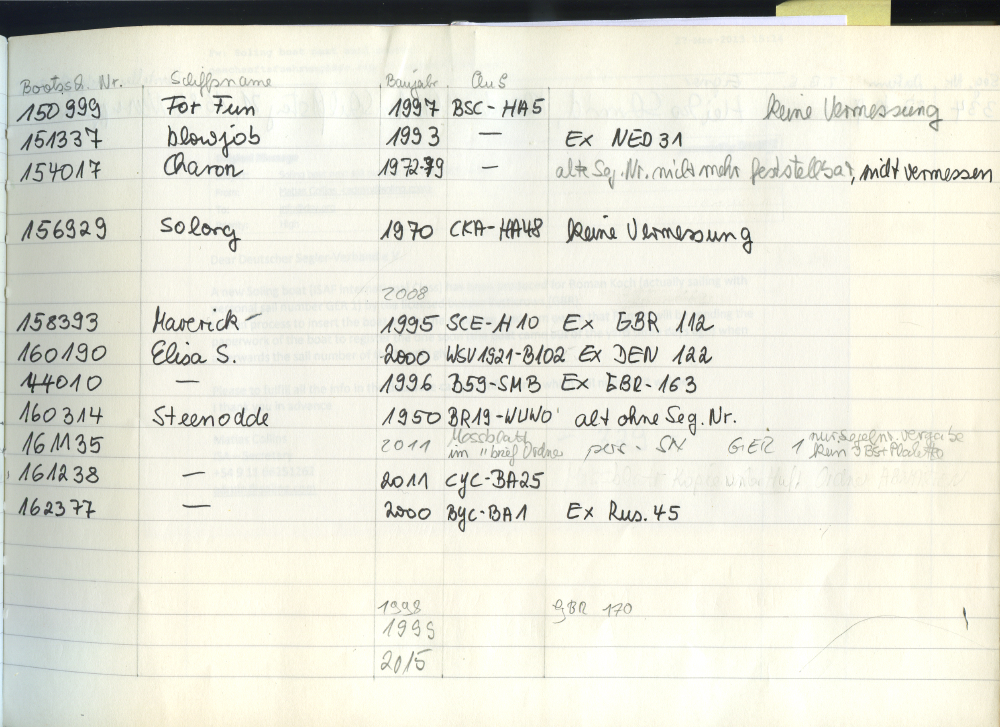 Bootssch. Nr. Schiffsname Baujahr Aus
150999 For Fun 1997 BSC-HA5 keine Vermessung
151337 blowjob 1993 — Ex NED 31
154017 Charon 1972-79 — alte Seg. Nr. nicht mehr feststellbar, nicht vermessen
156929 Solong 1970 CKA-HA48 keine Vermessung
2008
158393 Maverick 1995 SCE-H10 Ex GBR 112
160190 Elisa S. 2000 WSV1921-B102 Ex DEN 122
44010 — 1996 B59-SMB Ex GBR-163
160314 Steenodde 1950 BR19-WUWO alt ohne Seg. Nr.
161135 2011 Messbrief im "brief Ordner pers. SN GER 1 nur Segelnr. Vergabe kein
161238 — 2011 CYC-BA25
162377 — 2000 BYC-BA1 Ex Rus. 45
1998 GBR 170
1999
2015